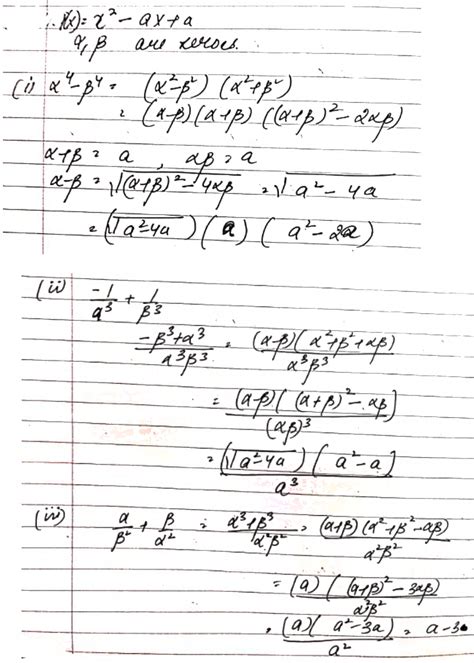 ∴ f(x) = x² - ax + a
α, β are zeroes.
(i) α⁴ - β⁴ = (α² - β²) (α² + β²)
= (α-β) (α+β) ((α+β)² - 2αβ)
α+β = a , αβ = a
α-β = √(α+β)² - 4αβ = √a² - 4a
= (√a²-4a) (a) (a² - 2a)
(ii) -1/α³ + 1/β³
-β³+α³/α³β³ = (α-β)(α²+β²+αβ)/α³β³
= (α-β)((α+β)² - αβ)/(αβ)³
= (√a²-4a)(a²-a)/a³
(iii) α/β² + β/α² = α³+β³/α²β² = (α+β)(α²+β²-αβ)/α²β²
= (a)((α+β)² - 3αβ)/α²β²
= (a)(a²-3a)/a² = a-3